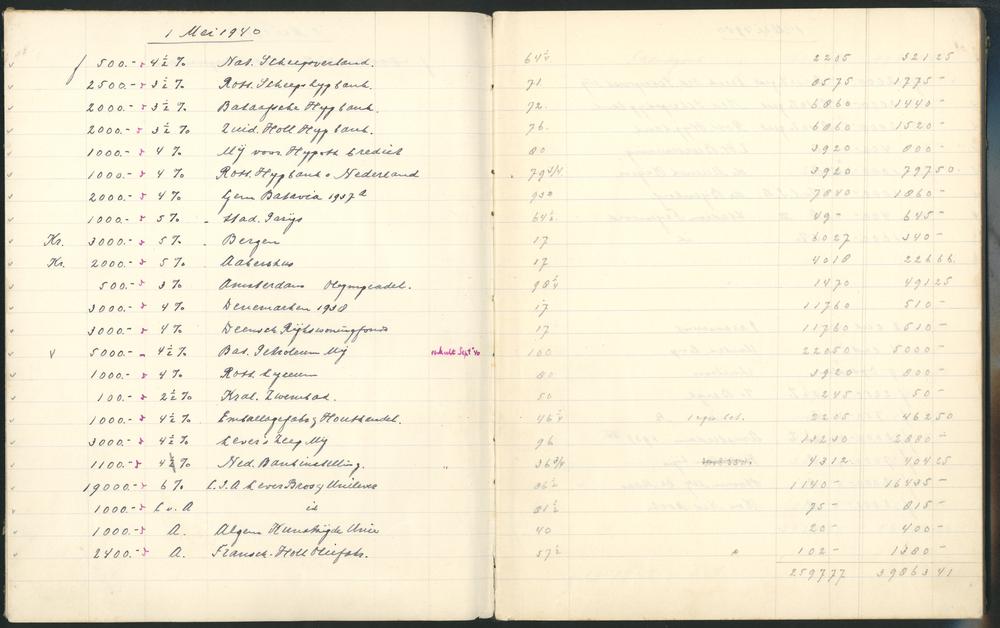 1 Mei 1940
f 500.- 4½ % Nat. Scheepsverband. 64½ 2205 521 25
2500.- 3½ % Rott. Scheepshypbank. 71 8575 1775 -
2000.- 3½ % Bataafsche Hyp bank. 72. 6860 1440 -
2000.- 3½ % Zuid. Holl Hyp bank. 76. 6860 1520 -
1000.- 4 % Mij voor Hypoth Crediet 80 3920 800 -
1000.- 4 % Rott Hypbank v Nederland 79 3/4 3920 797 50.
2000.- 4 % Gem Batavia 1937 a 93 7840 1860 -
1000.- 5 % Stad. Parijs 64½ 49 - 645 -
Kr. 3000.- 5 % Bergen 17 6027 340 -
Kr. 2000.- 5 % Aabenhus 17 4018 226 66.
500.- 3 % Amsterdam Olympiadel. 98¼ 1470 491 25
3000.- 4 % Denemarken 1938 17 11760 510 -
3000.- 4 % Deensch Rijkswoningfonds 17 11760 510 -
v 5000.- 4½ % Bat. Petroleum Mij Sept '40 100 22050 5000 -
1000.- 4 % Rott. Lyceum 80 3920 800 -
100.- 2½ % Kral. Zwembad. 50 245 50 -
1000.- 4½ % Emballagefabr Houthandel. 46¼ 2205 462 50
3000.- 4½ % Lever's Zeep Mij 96 13230 2880 -
1100.- 4 % Ned. Bankinstelling. 36 3/4 4312 404 25
19000.- 6 % C.v.A Lever Bros Unilever 86½ 1140 - 16435 -
1000.- C v. A id 81½ 75 - 815 -
1000.- A. Algem Kunstzijde Unie 40 20 - 400 -
2400.- A. Fransch. Holl Oliefabr. 57½ 102 - 1380 -
2597 77 39863 41